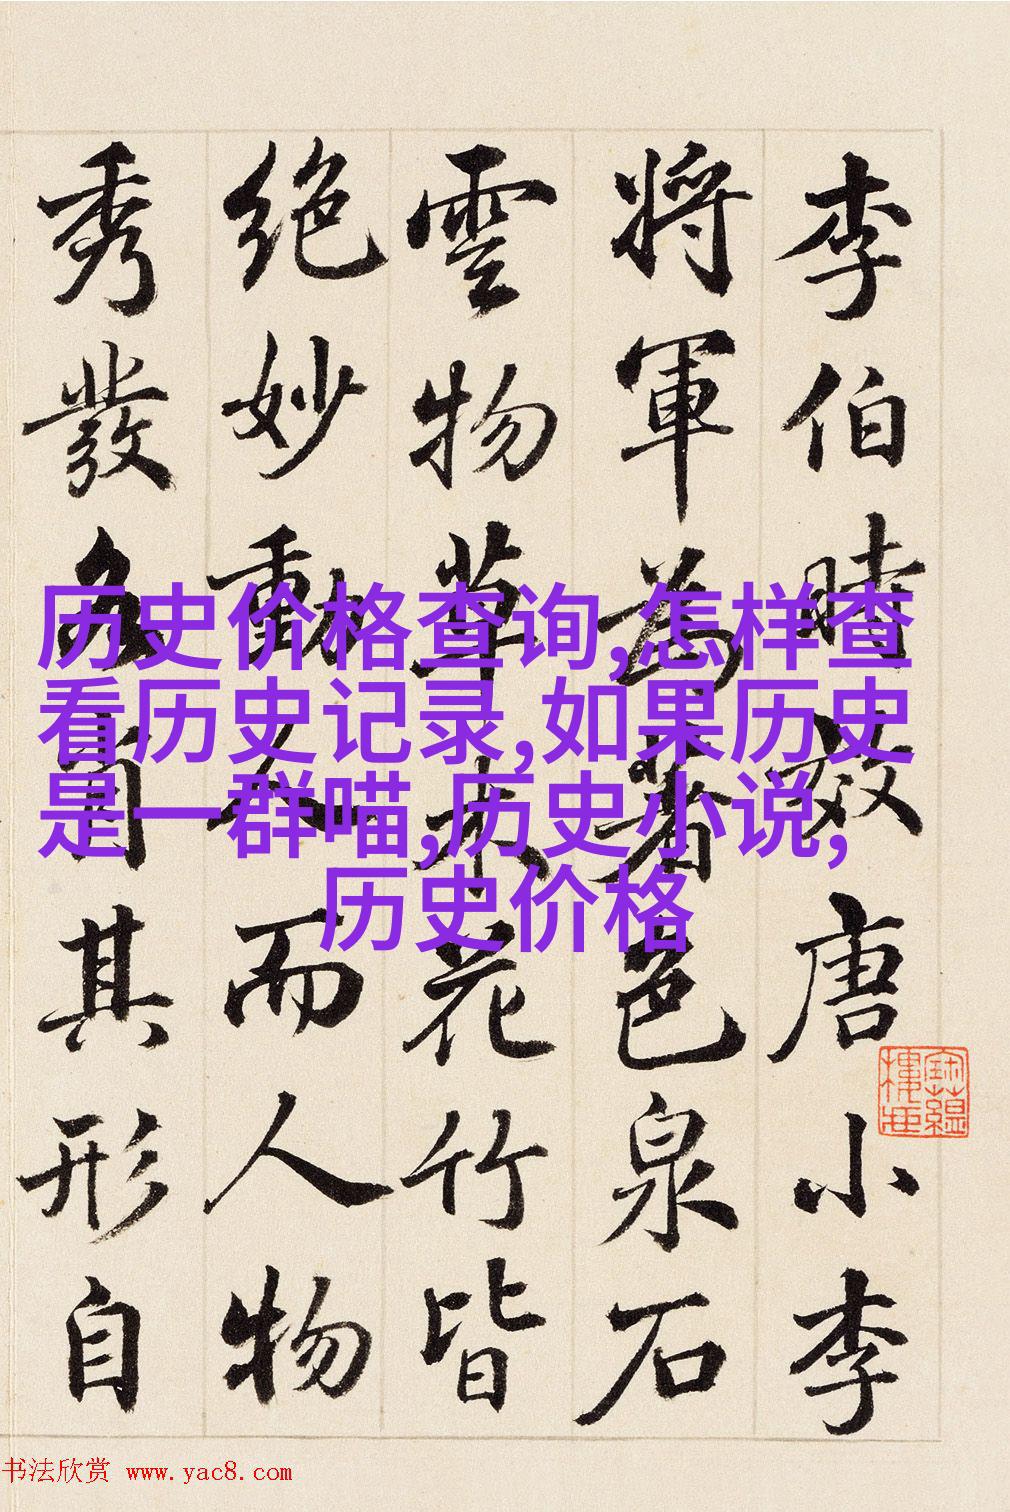 李伯時效唐小李
將軍為著色泉石
雲物草木花竹皆
絶妙動人而人物
秀發各肖其形自
历史价格查询,怎样查
看历史记录,如果历史
是一群喵,历史小说,
历史价格
书法欣赏 www.yac8.com